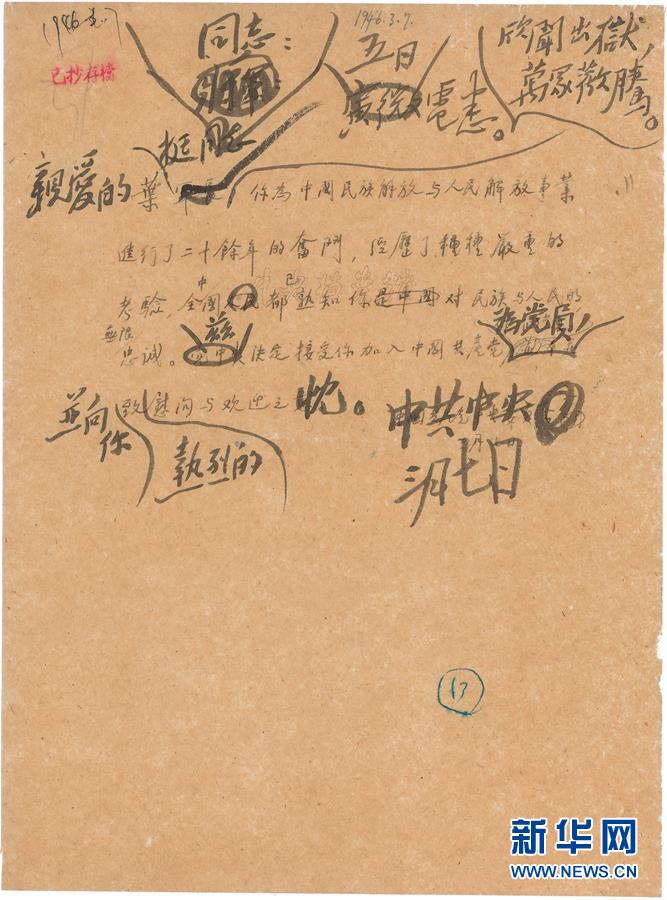 1946.3.7
1946.3.7.
已抄存檔
同志：
五日
電悉。
欣聞出獄，
萬眾歡騰。
挺同志
親愛的葉
你為中國民族解放与人民解放事業
進行了二十餘年的奮鬥，經歷了種種嚴重的
中
已
考驗，全國民都熟知你是中國對民族与人民的
無限
茲
為黨員，
忠誠。決定接受你加入中國共產党
並向
你
致慰问与欢迎之忱。
熱烈的
中共中央
三月七日
13
新华网
WWW.NEWS.CN